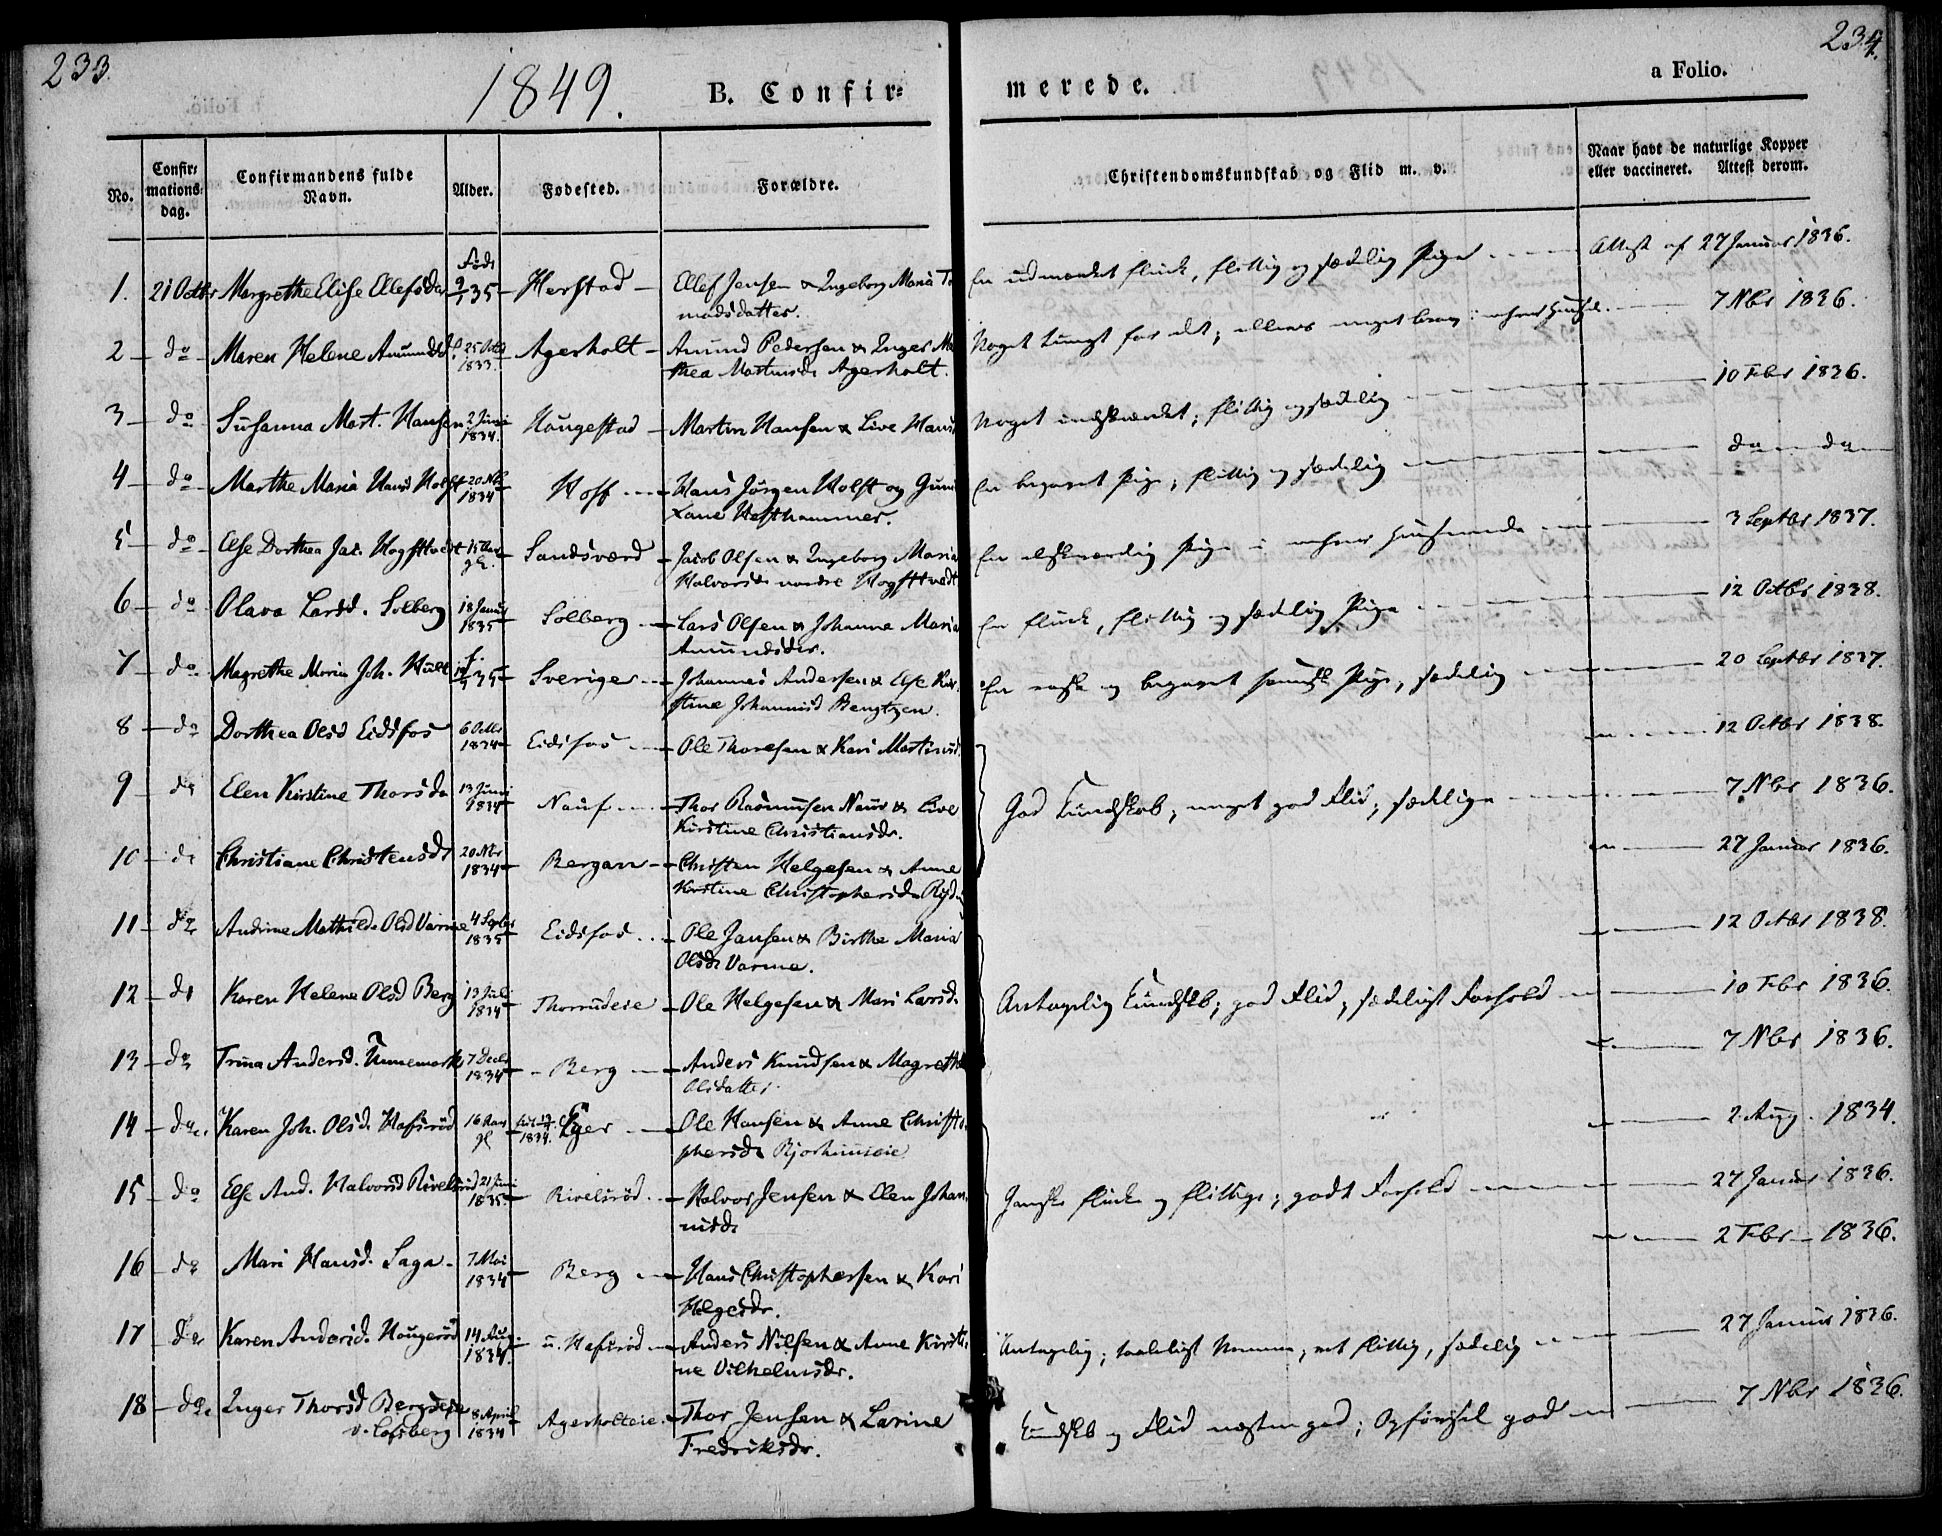 233.
234.
1849.
B. Confir=
merede.
a Folio.
No.
Confir=
mations=
dag.
Confirmandens fulde
Navn.
Alder.
Fødested.
Forældre.
Christendomskundskab og Flid m. v.
Naar havt de naturlige Kopper
eller vaccineret. Attest derom.
1. 21 Octbr Margrethe Elise Ellefsdr Født 9/1 35 Herstad Ellef Jensen & Ingeborg Maria To
madsdatter.
En udmærket flink, flittig og sædelig Pige Attest af 27 Januar 1836.
2 do Maren Helene Amundsd f. 25 Octb
1833. Agerholt Amund Pedersen & Inger Ma
thea Mortensdr Agerholt.
Noget tungt for det; ellers meget brav 7 Nbr 1836.
3 do Susanna Mart. Hansen 2 Juni
1834. Hougestad Martin Hansen & Live Hansd
Noget indskrænket; flittig og sædelig 10 Febr 1836.
4 do Marthe Maria Hansd Holst 20 Nb
1834 Hoff Hans Jörgen Holst og Guni
Lane Hesthammer.
En begavet Pige; flittig og sædelig do do
5 do Else Dorthea Jac. Hogstvedt 15 Aar
gl. Sandsværd Jacob Olsen & Ingeborg Maria
Halvorsdr nordre Hogstvedt
En elskværdig Pige i enhver Henseende 3 Septbr 1837.
6 do Olava Larsd. Solberg 18 Januar
1835 Solberg Lars Olsen & Johanne Maria
Amundsdr.
En flink, flittig og sædelig Pige 12 Octbr 1838.
7 do Magrethe Maria Joh. Hult f. 35 Sverige Johannes Andersen & Else Kir
stine Johannisd Bengtzen.
En rask og begavet svensk Pige, sædelig 20 Septbr 1837.
8 do Dorthea Olsd Eidsfos 6 Octbr
1834 Eidsfos Ole Thoresen & Kari Martinsd
12 Octbr 1838.
9 do Elen Kirstine Thorsdr 13 Juni
1834 Nauf Thor Rasmusen Nauv & Live
Kirstine Christiansdr.
God Kundskab; meget god Flid; sædelige 7 Nbr 1836.
10 do Christiane Christensdr 20 Nbr
1834 Bergan Christen Helgesen & Anne
Kirstine Christophersdr
27 Januar 1836.
11 do Andrine Mathilde Olsd Varme 4 Septbr
1835 Eidsfod Ole Jansen & Birthe Maria
Olsdr Varme.
12 Octbr 1838.
12 do Karen Helene Olsd Berg 13 Juli
1834 Thorrudeie Ole Helgesen & Mari Larsd.
Antagelig Kundskb; god Flid; sædeligt Forhold 10 Febr 1836.
13 do Trina Andersd. Unnemark 7 Decbr
1834 Berg Anders Knudsen & Magrethe
Olsdatter
7 Nbr 1836.
14 do Karen Joh. Olsd. Hafsröd 16 Aar
gl 1834. Eger Ole Hansen & Anne Christo
phersdr
2 Aug. 1834.
15 do Else And. Halvorsd Rivelsröd 21 Juni
1835 Rivelsröd Halvor Jensen & Elen Johan
nisdr
Ganske flinke og flittige; godt Forhold 27 Januar 1836.
16 do Mari Hansd. Saga 7 Mai
1834 Berg Hans Christophersen & Kari
Helgesdr.
2 Febr 1836.
17 do Karen Andersd. Hougeröd 14 Aug.
1834. u. Hafsröd Anders Nilsen & Anne Kirsti
ne Vilhelmsdr.
Antagelig; taaleligt Nemme; ret flittig, sædelig 27 Januar 1836.
18 do Inger Thorsd Bergseie
v. Cofsberg 8 April
1834 Agerholteie Thor Jensen & Larine
Fredriksdr.
Kundskb og Flid næsten god; Opførsel god 7 Nbr 1836.